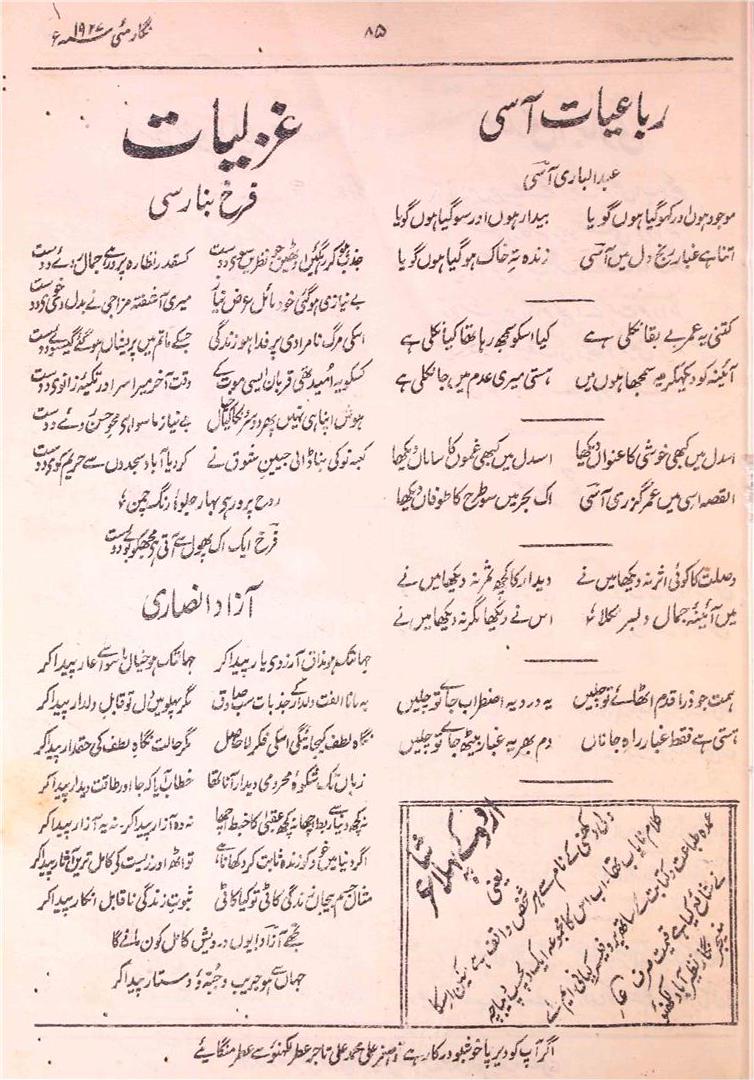 نگار مئی ۱۹۲۷ء
۸۵
رباعیات آسی
عبدالباری آسی
موجود ہوں اور کھو گیا ہوں گویا بیدار ہوں اور سو گیا ہوں گویا
اتنا ہے غبار رنج دل میں آسی زندہ تہِ خاک ہو گیا ہوں گویا
کتنی یہ عمر بے بقا نکلی ہے کیا اسکو سمجھ رہا تھا کیا نکلی ہے
آئینہ کو دیکھکر یہ سمجھا ہوں میں ہستی میری عدم میں جا نکلی ہے
اس دل میں کبھی خوشی کا عنواں دیکھا اس دل میں کبھی غموں کا ساماں دیکھا
القصہ اسی میں عمر گزری آسی اک بحر میں سو طرح کا طوفاں دیکھا
وصلت کا کوئی اثر نہ دیکھا میں نے دیدار کا کچھ ثمر نہ دیکھا میں نے
میں آئینہ جمال دلبر نکلا اس نے دیکھا مگر نہ دیکھا میں نے
ہمت جو ذرا قدم اٹھائے تو چلیں یہ درد یہ اضطراب جائے تو چلیں
ہستی ہے فقط غبار راہِ جاناں دم بھر یہ غبار بیٹھ جائے تو چلیں
اردو کے پہلا شاعر
یعنی
ولی دکھنی کے نام سے ہر شخص واقف ہے لیکن اسکا
کلام نایاب تھا۔ اب اس کا مجموعہ ایک دلچسپ دیباچہ
عمدہ طباعت و کتابت کے ساتھ پروفیسر کیانی ایم اے
نے شائع کیا ہے قیمت صرف
منیجر نگار نظیر آباد لکھنؤ
غزلیات
فرخ بنارسی
جذب ہو کر رہگئیں اٹھیں جو نظریں سوئے دوست کسقدر نظارہ پرور ہے جمال روئے دوست
بے نیازی ہو گئی خود مائل عرض نیاز میری آشفتہ مزاجی نے بدل دی خوئے دوست
اسکی مرگ نامرادی پر فدا ہو زندگی جسکے ماتم میں پریشاں ہو گئے گیسوئے دوست
کسکو یہ امید تھی قربان ایسی موت کے وقت آخر میرا سر اور تکیہ زانوئے دوست
ہوش اپنا ہی نہیں پھر دوسر کا کیا خیال بے نیاز ماسوا ہے محو حسن روئے دوست
کعبہ نو کی بنا ڈالی جبین شوق نے کر دیا آباد سجدوں سے حریم کوئے دوست
روح پرور ہے بہار جلوۂ رنگ چمن
فرخ ایک اک پھول سے آتی ہے مجھکو بوئے دوست
آزاد انصاری
جہانتک ہو مذاق آرزوئے یار پیدا کر جہانتک ہو خیال ماسوا سے عار پیدا کر
یہ مانا الفت دلدار کے جذبات سب صادق مگر پہلو میں دل تو قابل دلدار پیدا کر
نگاہ لطف کیجائیگی اسکی فکر لا حاصل مگر حالت نگاہ لطف کی حقدار پیدا کر
زباں تک شکوۂ محرومی دیدار آنا تھا خطاب آیا کہ جا اور طاقت دیدار پیدا کر
نہ کچھ دنیا سے ربط اچھا نہ کچھ عقبی کا خبط اچھا نہ وہ آزار پیدا کر۔ نہ یہ آزار پیدا کر
اگر دنیا میں خود کو زندہ ثابت کر دکھانا ہے تو اٹھ اور زیست کی کامل ترین آثار پیدا کر
مثال جسم بیجاں زندگی کاٹی تو کیا کاٹی ثبوت زندگی ناقابل انکار پیدا کر
تجھے آزاد ایوں درویش کامل کون مانے گا
جہاں سے ہو جریب و جبّہ و دستار پیدا کر
اگر آپ کو دیر پا خوشبو درکار ہے تو اصغر علی محمد علی تاجر عطر لکھنؤ سے عطر منگائیے